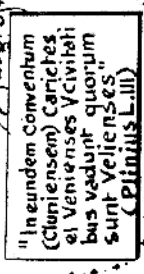 "In eundem Conventum
(Cluniensem) Carietes
et Venienses V civitati
bus vadunt quorum
sunt Velienses"
(Plinius L. III)